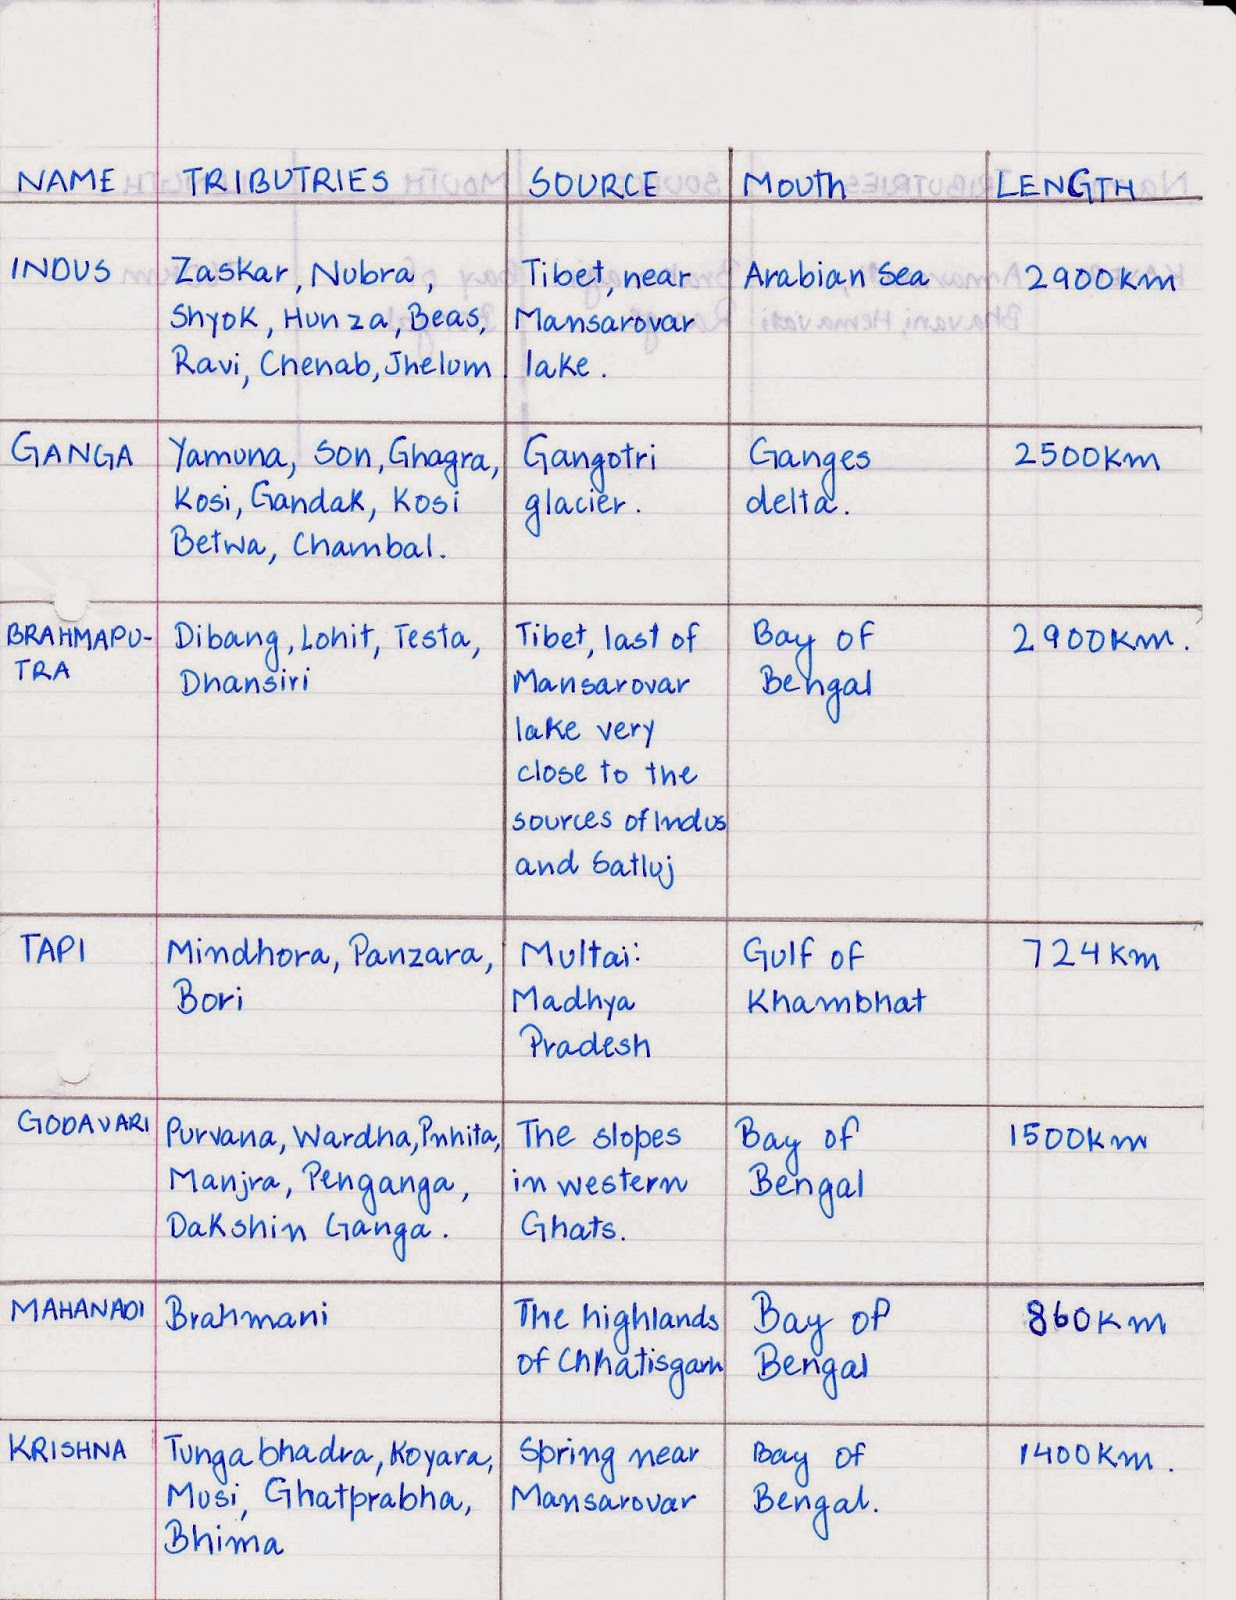 NAME TRIBUTRIES SOURCE MOUTH LENGTH
INDUS Zaskar, Nubra, Tibet, near Arabian Sea 2900km
Shyok, Hunza, Beas, Mansarovar
Ravi, Chenab, Jhelum lake.
GANGA Yamuna, Son, Ghagra, Gangotri Ganges 2500km
Kosi, Gandak, Kosi glacier. delta.
Betwa, Chambal.
BRAHMAPU- Dibang, Lohit, Testa, Tibet, last of Bay of 2900km.
TRA Dhansiri Mansarovar Bengal
lake very
close to the
sources of Indus
and Satluj
TAPI Mindhora, Panzara, Multai: Gulf of 724km
Bori Madhya Khambhat
Pradesh
GODAVARI Purvana, Wardha, Pnhita, The slopes Bay of 1500km
Manjra, Penganga, in western Bengal
Dakshin Ganga. Ghats.
MAHANADI Brahmani The highlands Bay of 860km
of Chhatisgarh Bengal
KRISHNA Tungabhadra, Koyara, Spring near Bay of 1400km.
Musi, Ghatprabha, Mansarovar Bengal.
Bhima